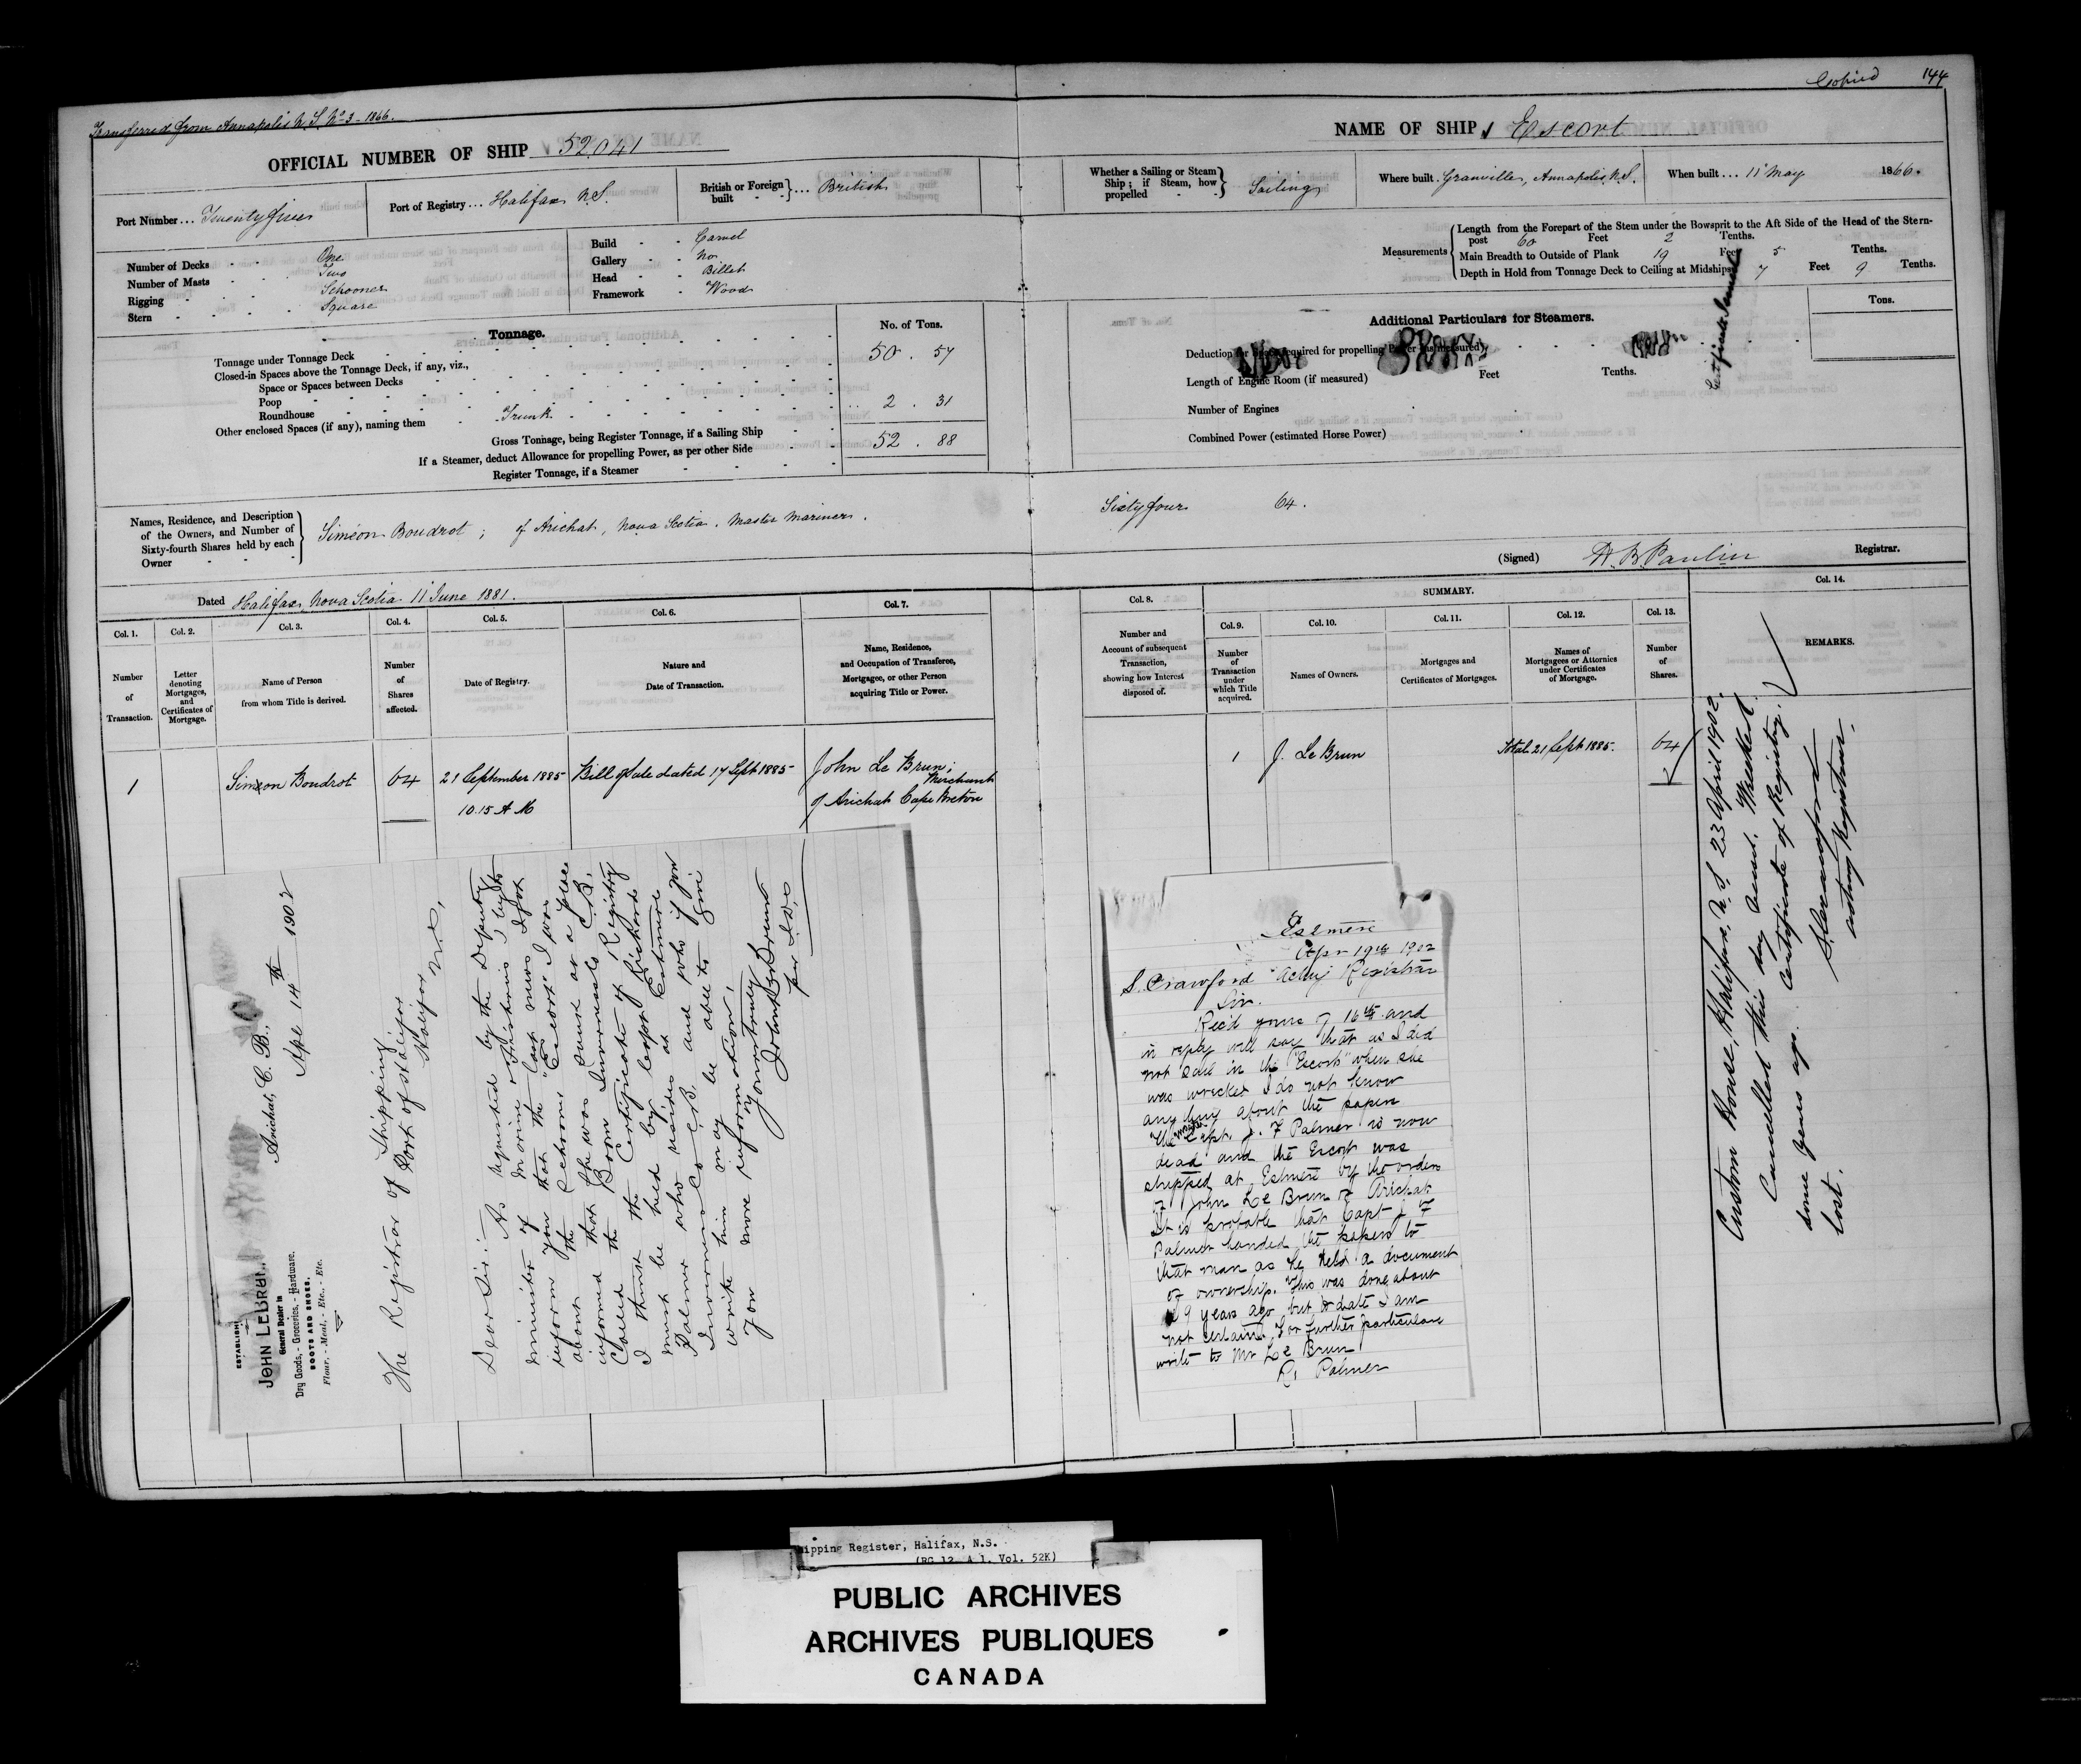 Transferred from Annapolis N. S. No 3 - 1866.
Copied 144
OFFICIAL NUMBER OF SHIP 52.041
NAME OF SHIP Escort
Port Number... Twenty five
Port of Registry... Halifax N.S.
British or Foreign built ... British
Whether a Sailing or Steam Ship; if Steam, how propelled Sailing
Where built. Granville, Annapolis, N.S.
When built... 11 May 1866.
Number of Decks One
Number of Masts Two
Rigging Schooner
Stern Square
Build Carvel
Gallery No
Head Billet
Framework Wood
Measurements
Length from the Forepart of the Stem under the Bowsprit to the Aft Side of the Head of the Stern-
post 60 Feet 2 Tenths.
Main Breadth to Outside of Plank 19 Feet 5 Tenths.
Depth in Hold from Tonnage Deck to Ceiling at Midships 7 Feet 9 Tenths.
Tonnage.
No. of Tons.
Tonnage under Tonnage Deck 50 . 57
Closed-in Spaces above the Tonnage Deck, if any, viz.,
Space or Spaces between Decks
Poop
Roundhouse
Other enclosed Spaces (if any), naming them Trunk 2 . 31
Gross Tonnage, being Register Tonnage, if a Sailing Ship 52 . 88
If a Steamer, deduct Allowance for propelling Power, as per other Side
Register Tonnage, if a Steamer
Additional Particulars for Steamers.
Tons.
Deduction for Space required for propelling Power (as measured)
Length of Engine Room (if measured) Feet Tenths.
Number of Engines
Combined Power (estimated Horse Power)
Names, Residence, and Description
of the Owners, and Number of
Sixty-fourth Shares held by each
Owner
Siméon Boudrot; of Arichat, Nova Scotia. Master Mariner.
Sixty four 64.
Dated Halifax, Nova Scotia 11 June 1881.
(Signed) H. B. Paulin Registrar.
Col. 1. Col. 2. Col. 3. Col. 4. Col. 5. Col. 6. Col. 7.
Number of Transaction.
Letter denoting Mortgages, and Certificates of Mortgage.
Name of Person from whom Title is derived.
Number of Shares affected.
Date of Registry.
Nature and Date of Transaction.
Name, Residence, and Occupation of Transferee, Mortgagee, or other Person acquiring Title or Power.
Col. 8. SUMMARY. Col. 14.
Col. 9. Col. 10. Col. 11. Col. 12. Col. 13.
Number and Account of subsequent Transaction, showing how Interest disposed of.
Number of Transaction under which Title acquired.
Names of Owners.
Mortgages and Certificates of Mortgages.
Names of Mortgagees or Attornies under Certificates of Mortgage.
Number of Shares.
REMARKS.
1 Simeon Boudrot 64 21 September 1885 Bill of Sale dated 17 Sept 1885 John Le Brun; Merchant
10.15 A M of Arichat Cape Breton
1 J. Le Brun Total 21 Sept 1885. 64
Custom House, Halifax, N.S. 23 April 1902.
Cancelled this day. Vessel Wrecked
some years ago. Certificate of Registry
lost.
S. Crawford
acting Registrar.
ESTABLISH
JOHN LEBRUN
General Dealer in
Dry Goods, - Groceries, - Hardware.
BOOTS AND SHOES.
Flour, - Meal, - Etc., - Etc.
Arichat, C. B., Apl 14th 1902
The Registrar of Shipping
Port of Halifax
Halifax
N.S,
Dear Sir:—
As requested by the Deputy
minister of Marine & Fisheries, beg to
inform you that the last news I got
about the Schooner "Escort" I was
informed that she was sunk at a place
Called the Boom Inverness Co C.B.
I think the Certificate of Registry
must be held by Capt Richard
Palmer who resides at Estmere
Inverness Co C.B. and who if you
write him may be able to give
you more information,
Yours truly
John LeBrun
per
Eslmere
Apr 19th 1902
S. Crawford "Acting" Registrar
Sir.
Rec'd yours of 16th and
in reply will say that as I did
not sail in the "Escort" when she
was wrecked I do not know
any thing about the papers
The master Capt. J. F Palmer is now
dead and the Escort was
stripped at Eslmere by the orders
of John Le Brun of Arichat
It is probable that Capt J F
Palmer handed the papers to
that man as he held a document
of ownership. This was done about
9 years ago but to date I am
not certain. For further particulars
write to Mr Le Brun
R. Palmer
hipping Register, Halifax, N.S.
(RG 12 A 1, Vol. 52K)
PUBLIC ARCHIVES
ARCHIVES PUBLIQUES
CANADA